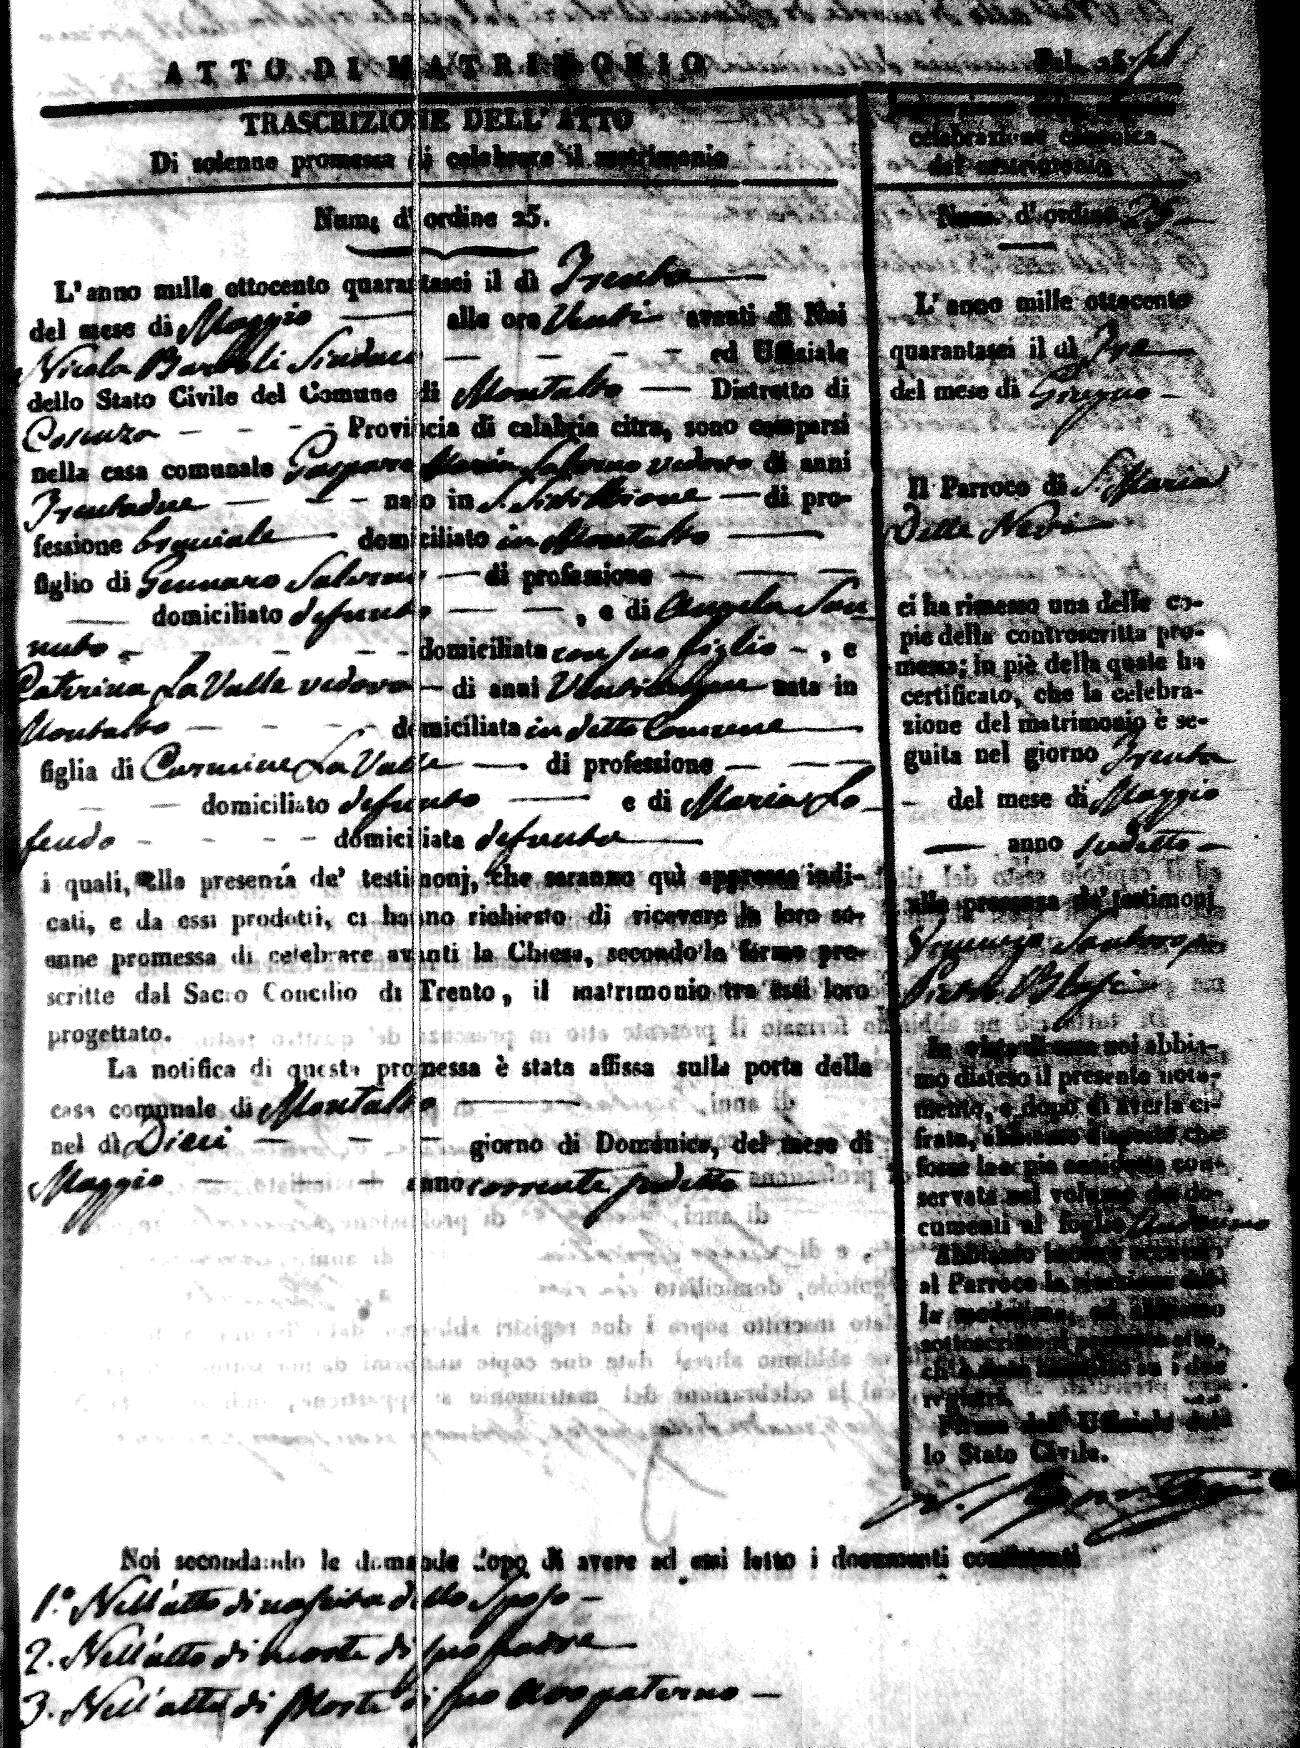 ATTO DI MATRIMONIO
TRASCRIZIONE DELL' ATTO
Di solenne promessa di celebrare il matrimonio
Num. d' ordine 25.
L' anno mille ottocento quarantasei il dì Trenta
del mese di Maggio alle ore Venti avanti di Noi
Nicola Sindaco ed Uffiziale
dello Stato Civile del Comune di Montalto Distretto di
Cosenza Provincia di calabria citra, sono comparsi
nella casa comunale Gaspare Maria Salerno vedovo di anni
Trentadue nato in S. di pro-
fessione domiciliato in Montalto
figlio di Gennaro Salerno di professione
domiciliato defunto , e di Angela San
nuto domiciliata con suo figlio , e
Caterina La Valle vedova di anni Venticinque nata in
Montalto domiciliata in detto Comune
figlia di Carmine La Valle di professione
domiciliato defunto e di Maria Lo
feudo domiciliata defunta
i quali, alla presenza de' testimonj, che saranno quì appresso indi-
cati, e da essi prodotti, ci hanno richiesto di ricevere la loro so-
enne promessa di celebrare avanti la Chiesa, secondo le forme pre-
scritte dal Sacro Concilio di Trento, il matrimonio tra essi loro
progettato.
La notifica di questa promessa è stata affissa sulla porta della
casa comunale di Montalto
nel dì Dieci giorno di Domenica, del mese di
Maggio anno corrente sudetto
celebrazione canonica
del matrimonio
Num. d' ordine 25
L' anno mille ottocento
quarantasei il dì Tre
del mese di Giugno
Il Parroco di S. Maria
Della Nevi
ci ha rimesso una delle co-
pie della controscritta pro-
messa; in piè della quale ha
certificato, che la celebra-
zione del matrimonio è se-
guita nel giorno Trenta
del mese di Maggio
anno sudetto
alla presenza de' testimonj
Vincenzo Santoro
Pietro
In vista di essa noi abbia-
mo disteso il presente nota-
mento, e dopo di averla ci-
frata, abbiamo disposto che
fosse la copia anzidetta con-
servata nel volume dei do-
cumenti al foglio
Abbiamo inoltre accusato
al Parroco la ricezione del-
la medesima, ed abbiamo
sottoscritto il presente atto,
ch' è stato inscritto su i due
registri.
Firma dell' Uffiziale del
lo Stato Civile.
Noi secondando le domande dopo di avere ad essi letto i documenti consistenti
1.° Nell'atto di nascita dello Sposo
2. Nell'atto di morte di suo padre
3. Nell'atto di Morte di suo Avo paterno